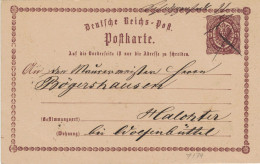 Deutsche Reichs-Post.
Postkarte.
Auf die Vorderseite ist nur die Adresse zu schreiben.
An den Maurermeister Herrn
Bögershausen
Halchter
(Bestimmungsort)
(Wohnung) bei Wolfenbüttel